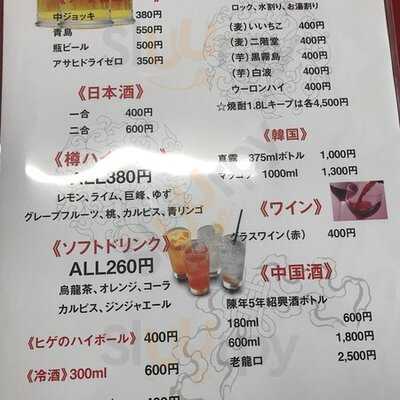 中ジョッキ 380円
青島 550円
瓶ビール 500円
アサヒドライゼロ 350円
《日本酒》
一合 400円
二合 600円
《樽ハイ
ALL380円
レモン、ライム、巨峰、ゆず
グレープフルーツ、桃、カルピス、青リンゴ
《ソフトドリンク》
ALL260円
烏龍茶、オレンジ、コーラ
カルピス、ジンジャエール
《ヒゲのハイボール》 400円
《冷酒》300ml 600円
ロック、水割り、お湯割り
(麦)いいちこ 400円
(麦)二階堂 400円
(芋)黒霧島 400円
(芋)白波 400円
ウーロンハイ 400円
☆焼酎1.8Lキープは各4,500円
《韓国》
真露 375mlボトル 1,000円
マッコリ 1000ml 1,300円
《ワイン》
グラスワイン(赤) 400円
《中国酒》
陳年5年紹興酒ボトル
180ml 600円
600ml 1,800円
老龍口 2,500円